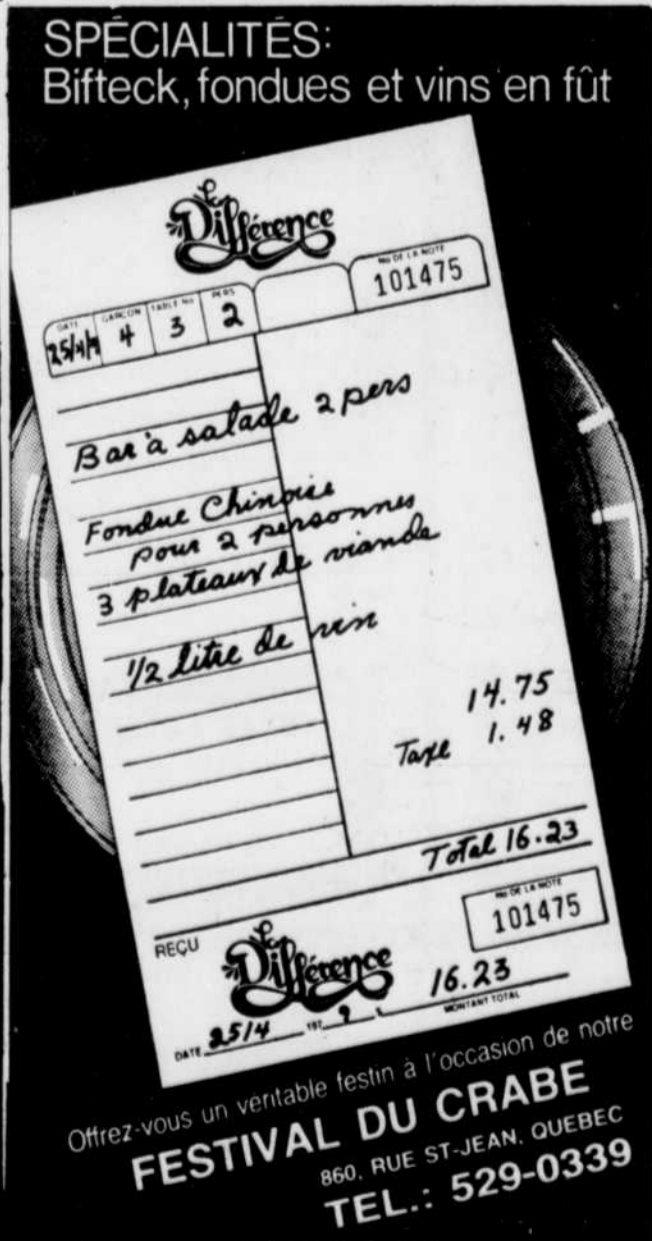 SPÉCIALITÉS:
Bifteck, fondues et vins en fût
La Différence
No DE LA NOTE
101475
DATE GARÇON TABLE No PERS
25/4/9 4 3 2
Bar à salade 2 pers
Fondue Chinoise
pour 2 personnes
3 plateaux de viande
1/2 litre de vin
14.75
Taxe 1.48
Total 16.23
No DE LA NOTE
101475
REÇU
La Différence
16.23
DATE 25/4 197 9 MONTANT TOTAL
Offrez-vous un véritable festin à l'occasion de notre
FESTIVAL DU CRABE
860, RUE ST-JEAN, QUEBEC
TEL.: 529-0339